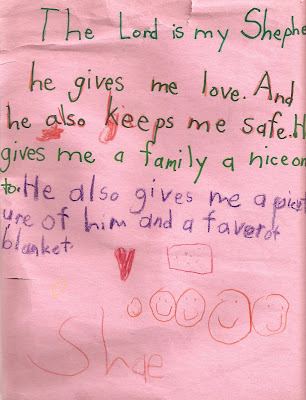 The Lord is my Shephe
he gives me love. And
he also keeps me safe. H
gives me a family a nice on
to. He also gives me a pict
ure of him and a favorot
blanket.
Shae